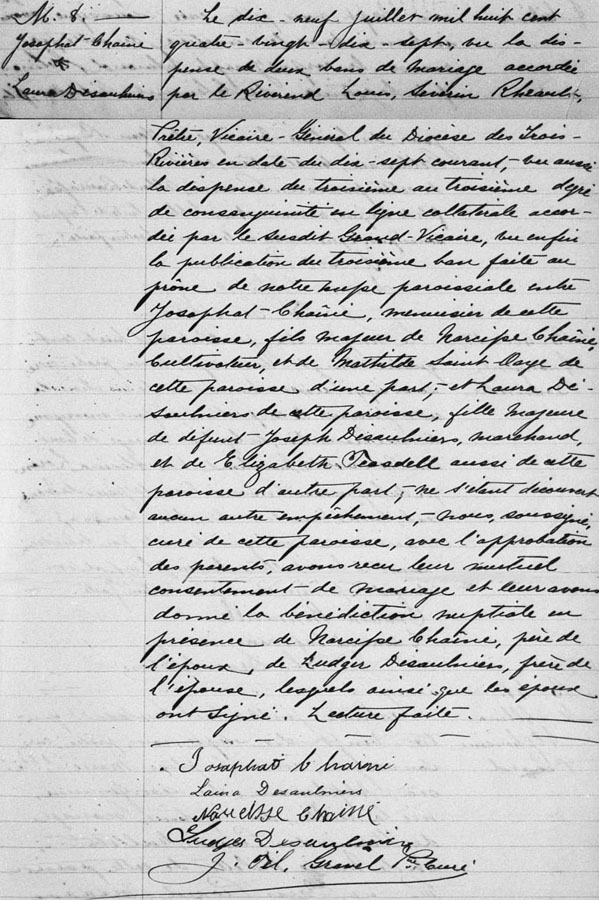 M. 8.
Josaphat Chaîné
&
Laura Désaulniers
Le dix-neuf juillet mil huit cent
quatre-vingt-dix-sept, vu la dis-
pense de deux bans de mariage accordée
par le Révérend Louis, Séverin Rheault,
Prêtre, Vicaire-Général du Diocèse des Trois-
Rivières en date du dix-sept courant,- vu aussi
la dispense du troisième au troisième dégré
de consanguinité en ligne collatérale accor-
dée par le susdit Grand-Vicaire, vu enfin
la publication du troisième ban faite au
prône de notre messe paroissiale entre
Josaphat-Chaîné, menuisier de cette
paroisse, fils majeur de Narcisse Chaîné,
Cultivateur, et de Mathilde Saint Onge de
cette paroisse d'une part,- et Laura Dé-
saulniers de cette paroisse, fille majeure
de défunt Joseph Désaulniers, marchand,
et de Elizabeth Teasdell aussi de cette
paroisse d'autre part,- ne s'étant découvert
aucun autre empêchement,- nous, soussigné,
curé de cette paroisse, avec l'approbation
des parents, avons reçu leur mutuel
consentement de mariage et leur avons
donné la bénédiction nuptiale en
présence de Narcisse Chaîné, père de
l'époux, de Ludger Désaulniers, frère de
l'épouse, lesquels ainsi que les époux
ont signé. Lecture faite.
Josaphat Chainé
Laura Desaulniers
Narcisse Chainé
Ludger Desaulniers
J. Fil. Gravel Ptre Curé